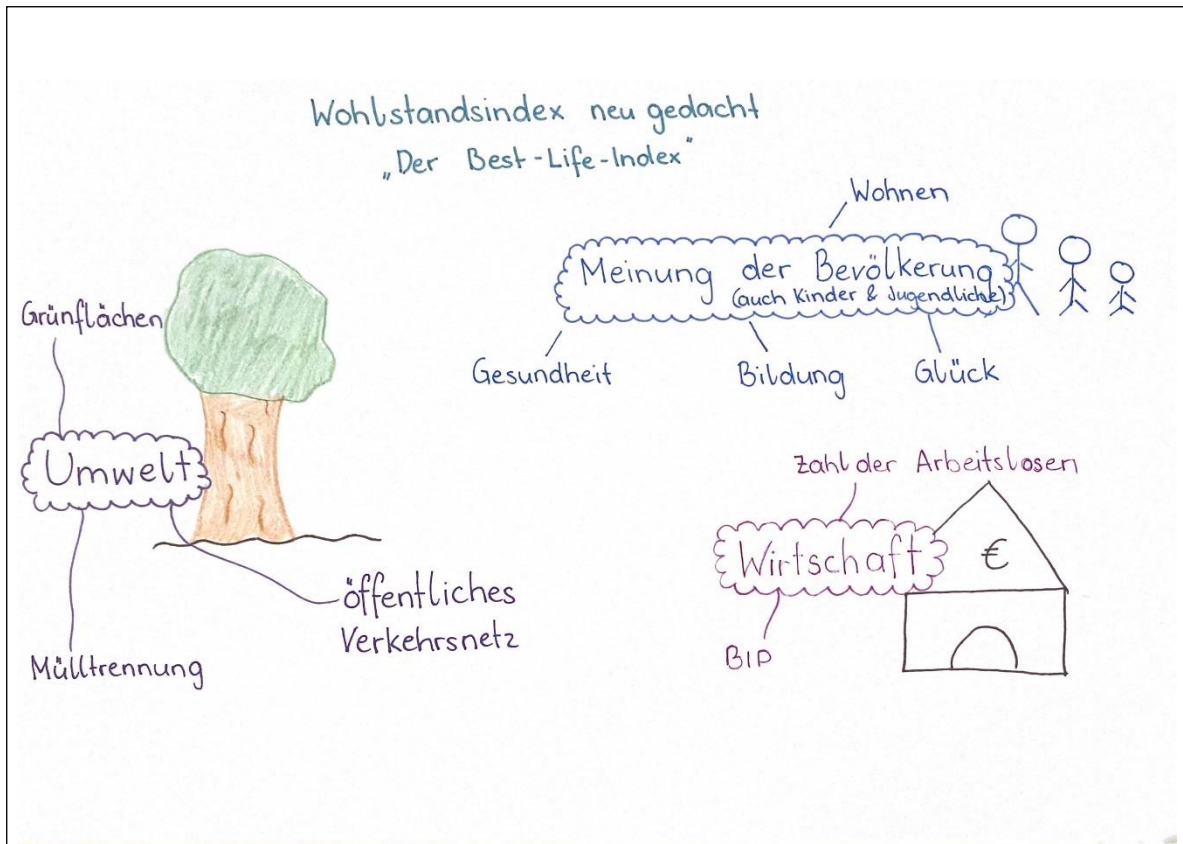 Wohlstandsindex neu gedacht
„Der Best-Life-Index"
Wohnen
Meinung der Bevölkerung
(auch Kinder & Jugendliche)
Gesundheit
Bildung
Glück
Grünflächen
Umwelt
öffentliches
Verkehrsnetz
Mülltrennung
Zahl der Arbeitslosen
Wirtschaft
€
BIP